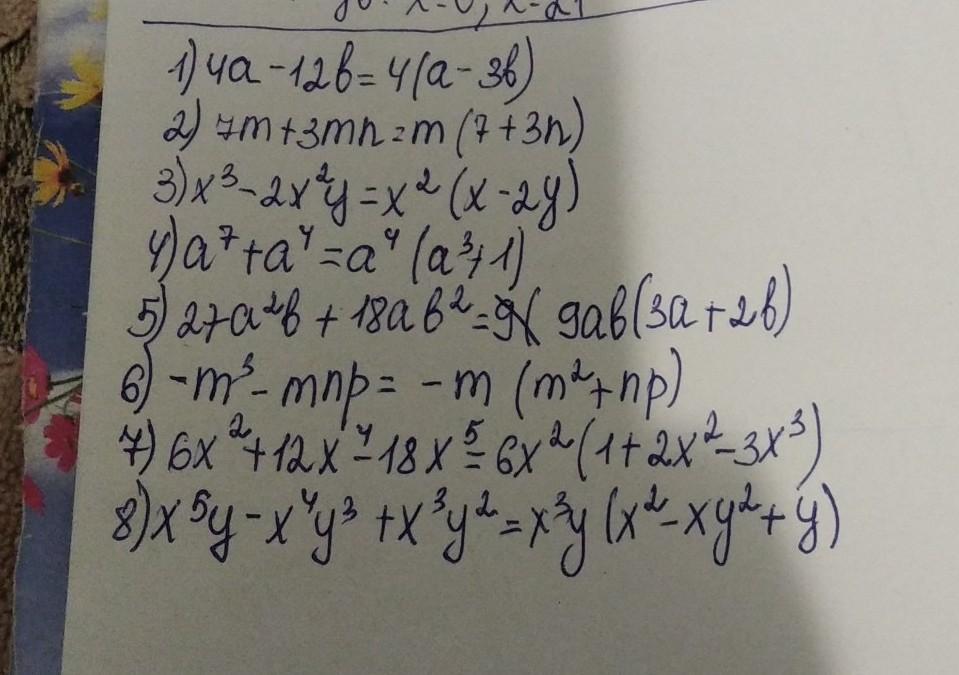 1) 4a - 12b = 4(a - 3b)
2) 7m + 3mn = m (7 + 3n)
3) x³ - 2x²y = x² (x - 2y)
4) a⁷ + a⁴ = a⁴ (a³ + 1)
5) 27a²b + 18ab² = 9ab(3a + 2b)
6) -m³ - mnp = -m (m² + np)
7) 6x² + 12x⁴ - 18x⁵ = 6x² (1 + 2x² - 3x³)
8) x⁵y - x⁴y³ + x³y² = x³y (x² - xy² + y)